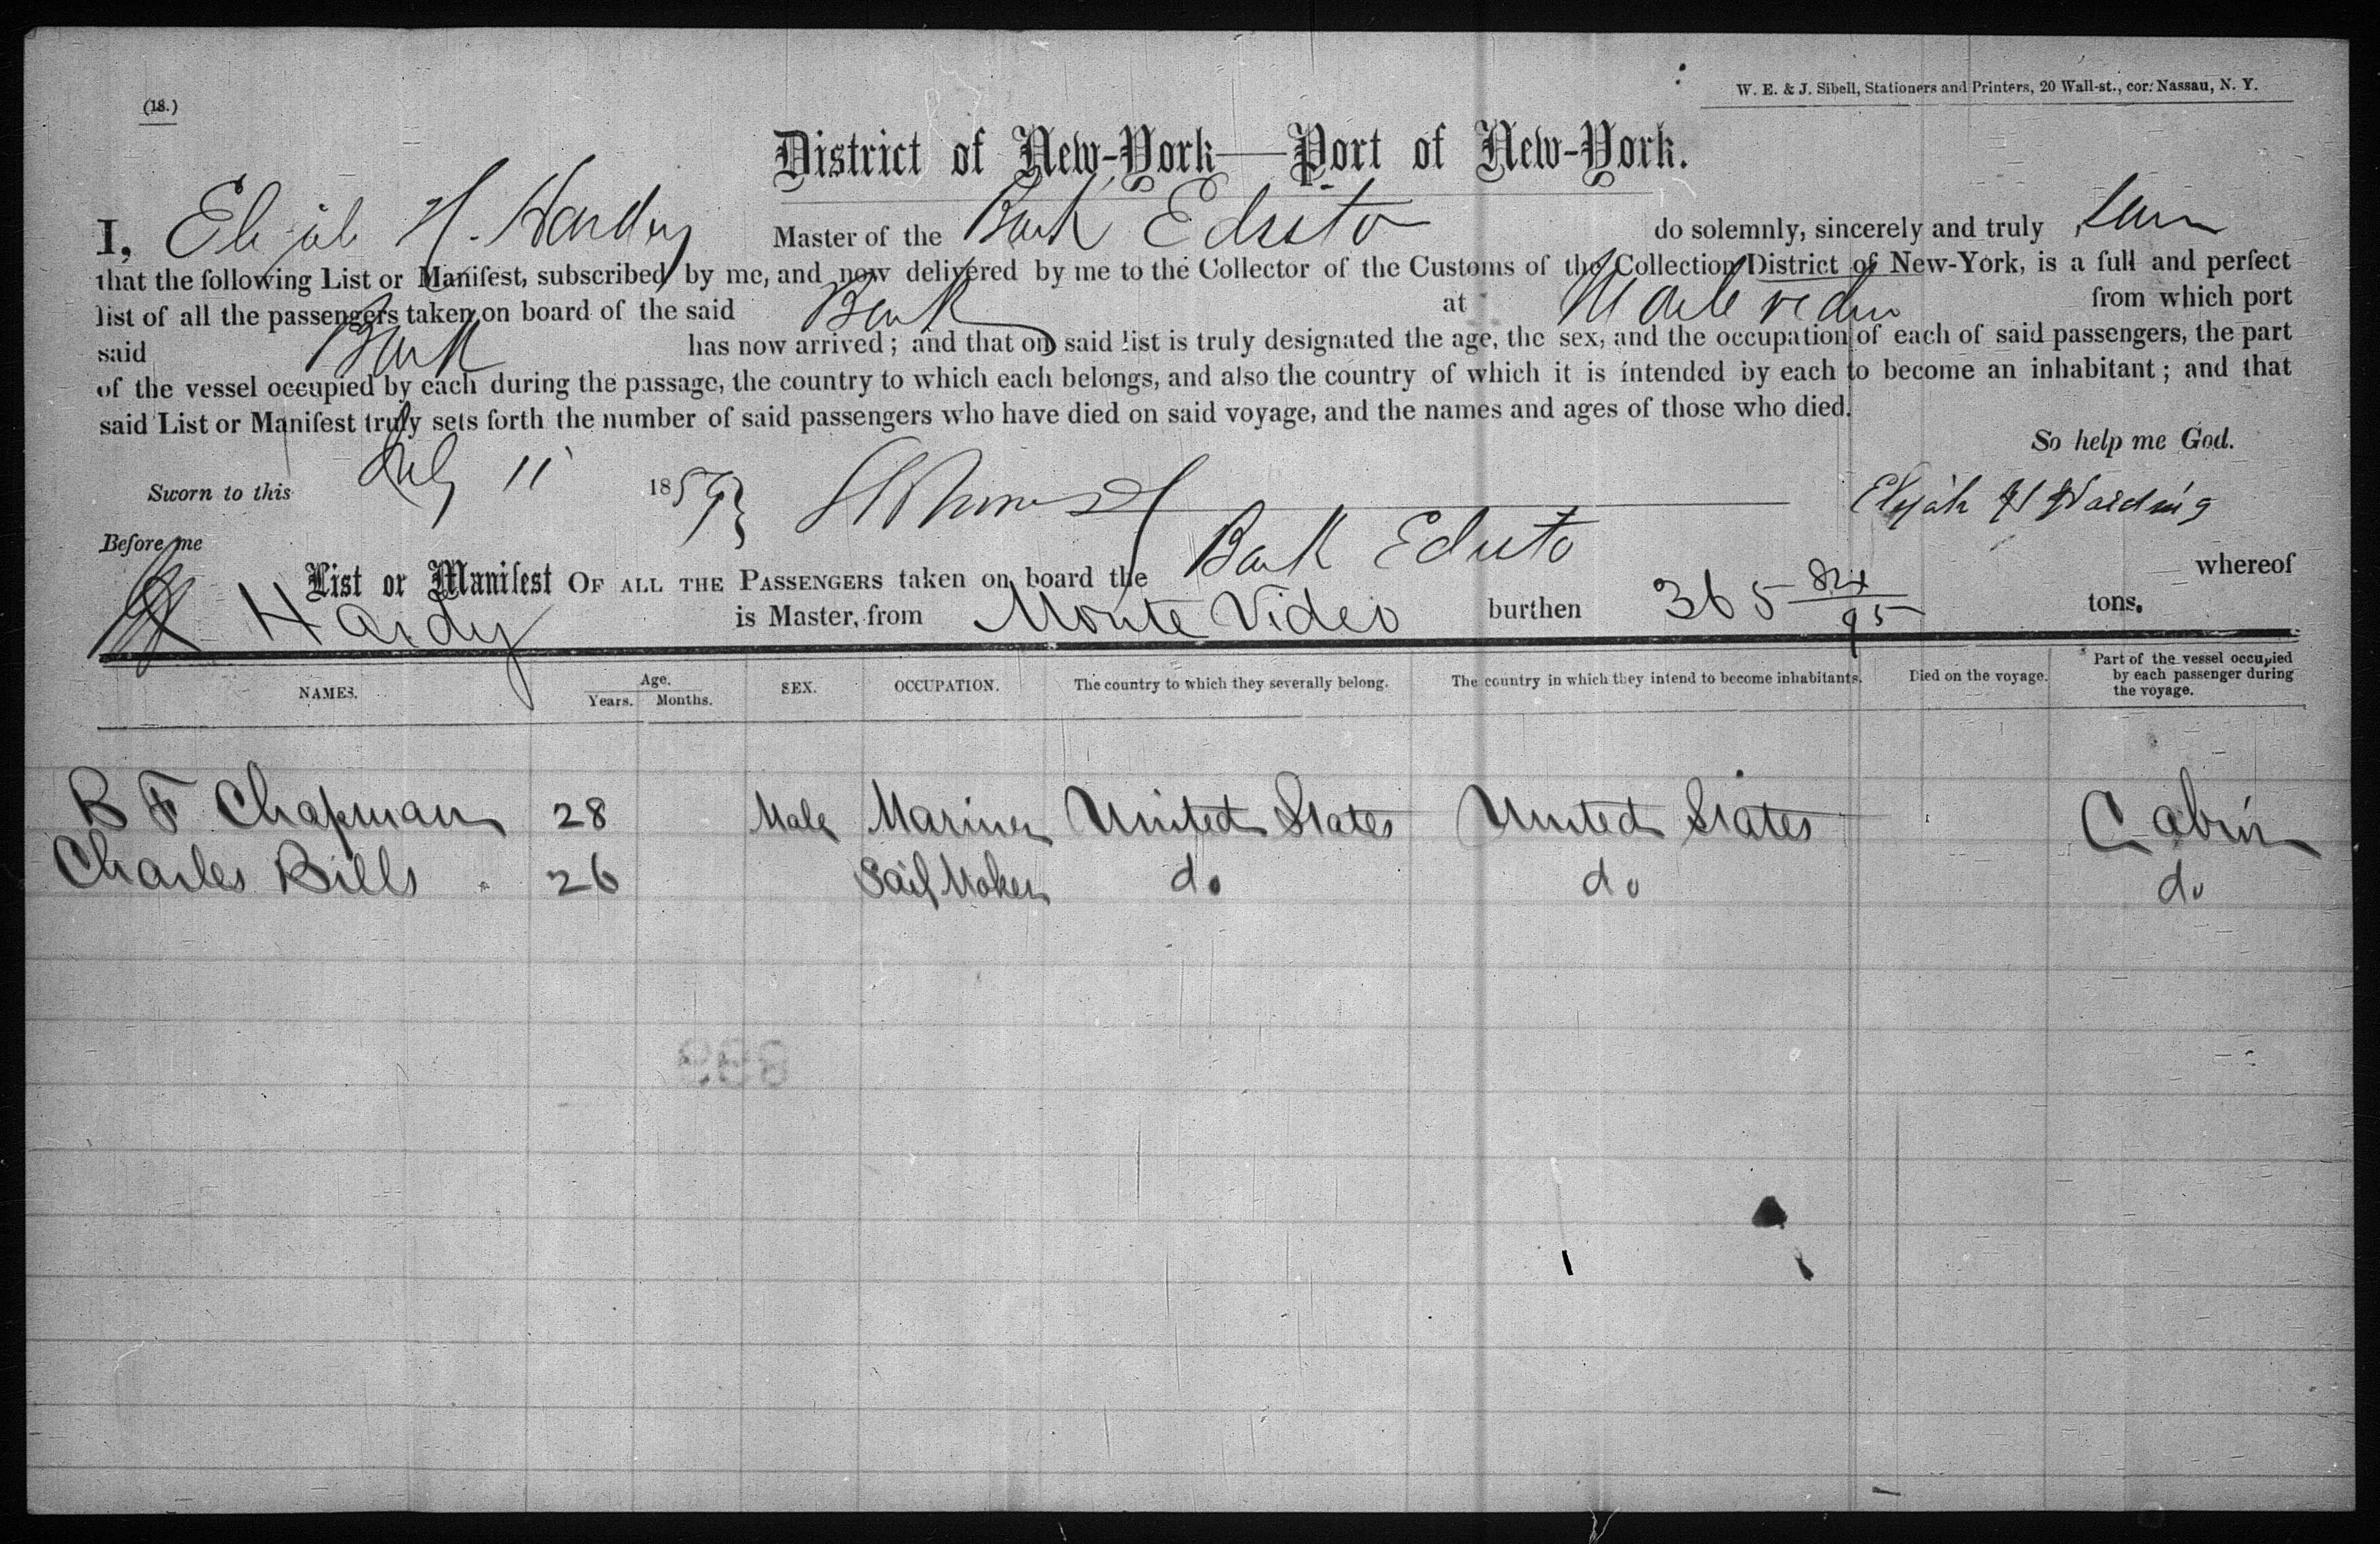 (18.)
W. E. & J. Sibell, Stationers and Printers, 20 Wall-st., cor. Nassau, N. Y.
District of New-York—Port of New-York.
I, Elijah H. Hardy Master of the Bark Edisto do solemnly, sincerely and truly
that the following List or Manifest, subscribed by me, and now delivered by me to the Collector of the Customs of the Collection District of New-York, is a full and perfect
list of all the passengers taken on board of the said Bark at from which port
said Bark has now arrived; and that on said list is truly designated the age, the sex, and the occupation of each of said passengers, the part
of the vessel occupied by each during the passage, the country to which each belongs, and also the country of which it is intended by each to become an inhabitant; and that
said List or Manifest truly sets forth the number of said passengers who have died on said voyage, and the names and ages of those who died.
So help me God.
Sworn to this July 11 1859 Elijah H Harding
Before me
List or Manifest OF ALL THE PASSENGERS taken on board the Bark Edisto whereof
Hardy is Master, from Monte Video burthen 365 84/95 tons.
NAMES. Age. Years. Months. SEX. OCCUPATION. The country to which they severally belong. The country in which they intend to become inhabitants. Died on the voyage. Part of the vessel occupied by each passenger during the voyage.
B F Chapman 28 Male Mariner United States United States Cabin
Charles Bills 26 Sail Maker do do do